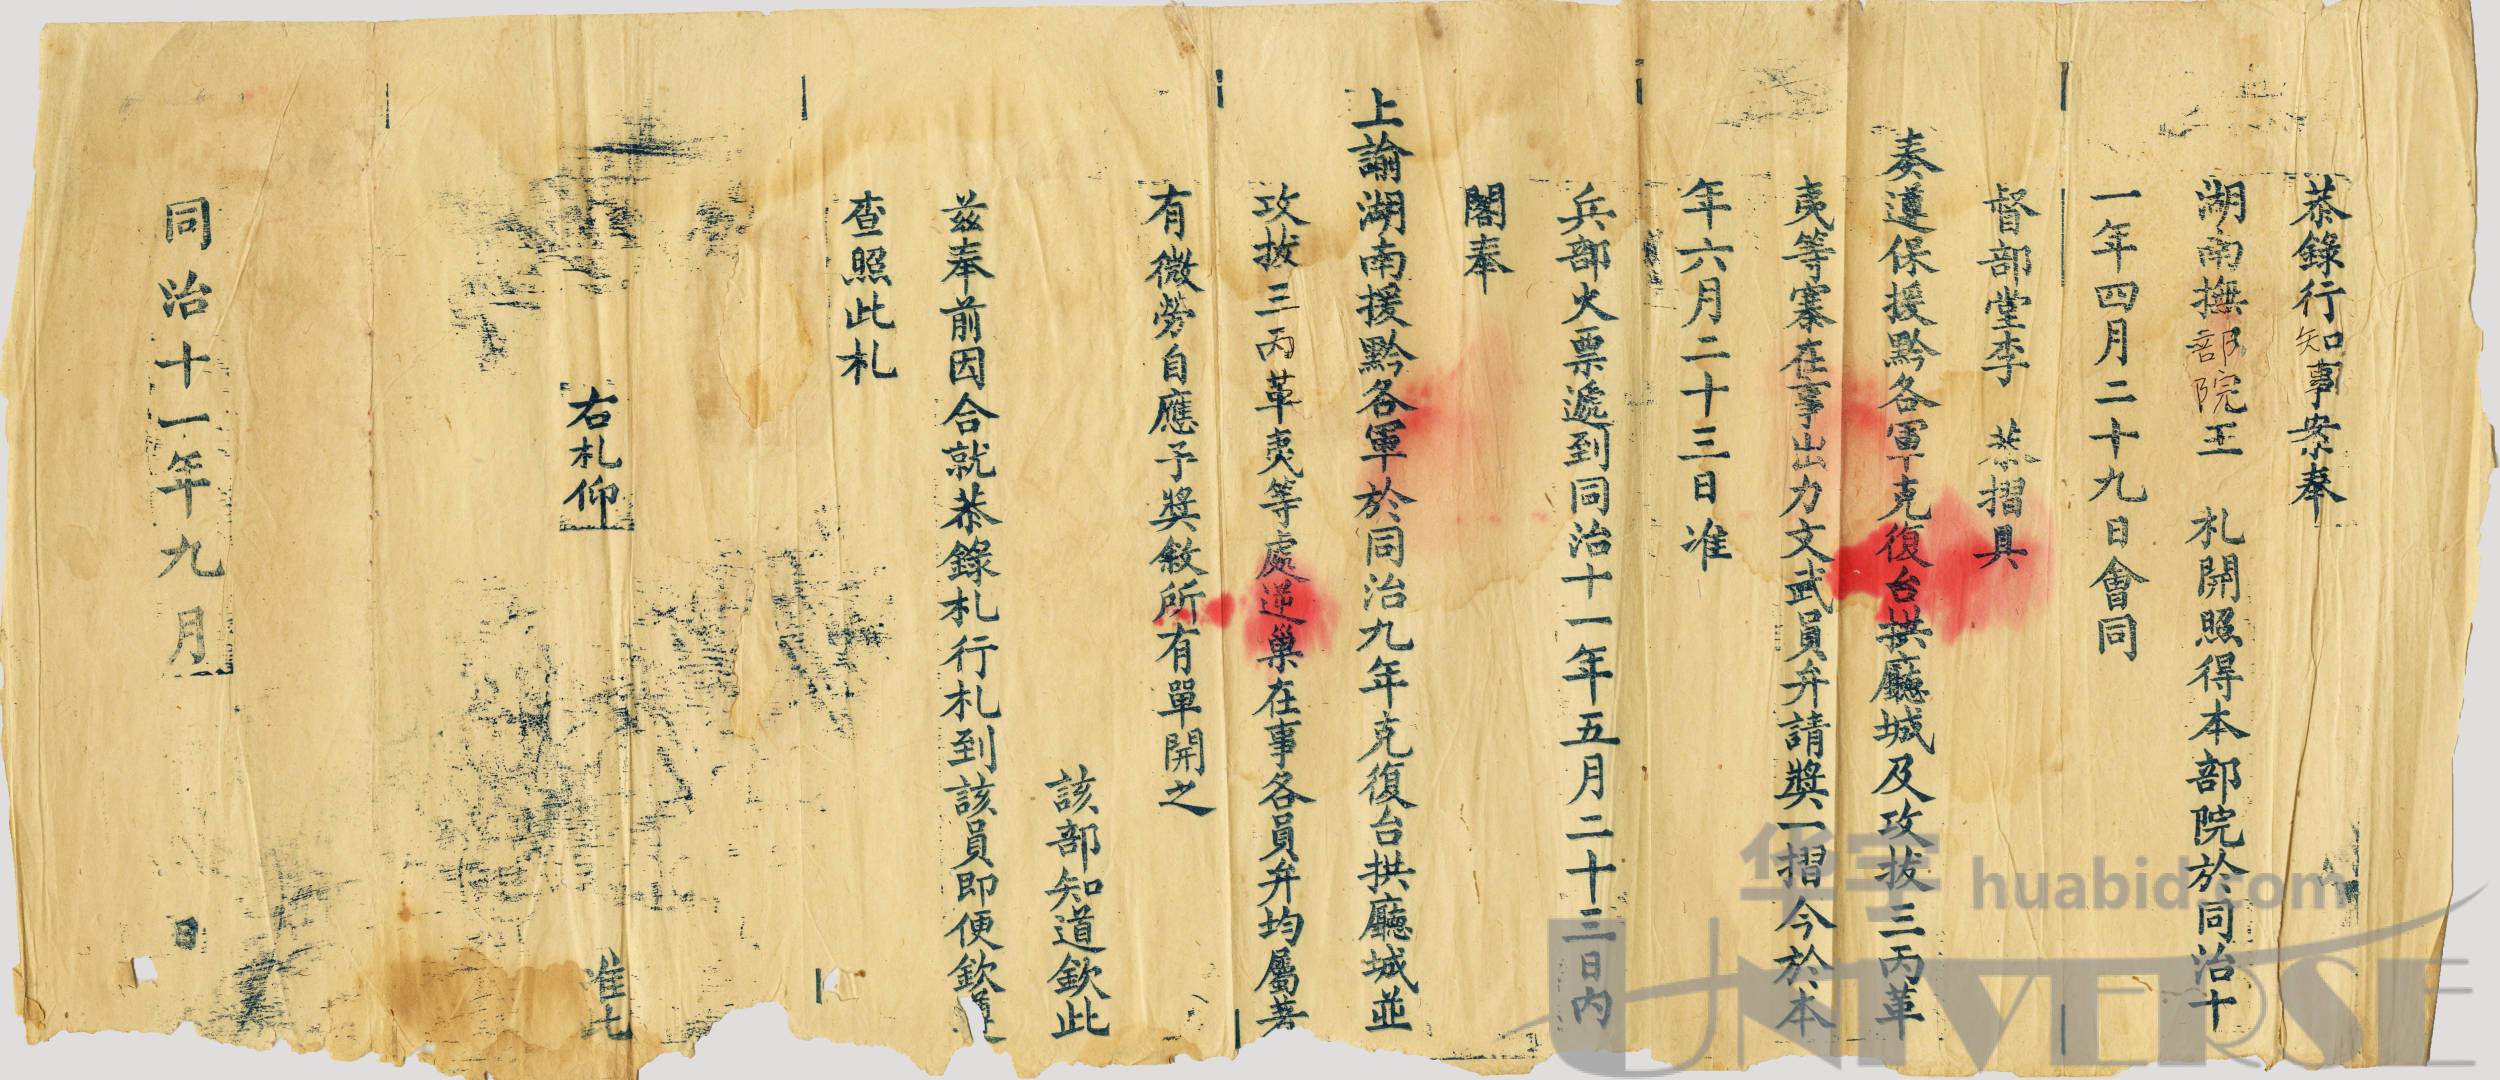 恭錄行知事案奉
湖南撫部院王　札開照得本部院於同治十
一年四月二十九日會同
督部堂李　恭摺具
奏遵保援黔各軍克復台拱廳城及攻拔三丙革
夷等寨在事出力文武員弁請獎一摺今於本
年六月二十三日准
兵部火票遞到同治十一年五月二十三日內
閣奉
上諭湖南援黔各軍於同治九年克復台拱廳城並
攻拔三丙革夷等處逆巢在事各員弁均屬著
有微勞自應予獎敘所有單開之
該部知道欽此
茲奉前因合就恭錄札行札到該員即便欽遵
查照此札
右札仰
准七
同治十一年九月
日
华宇 huabid.com
UNIVERSE